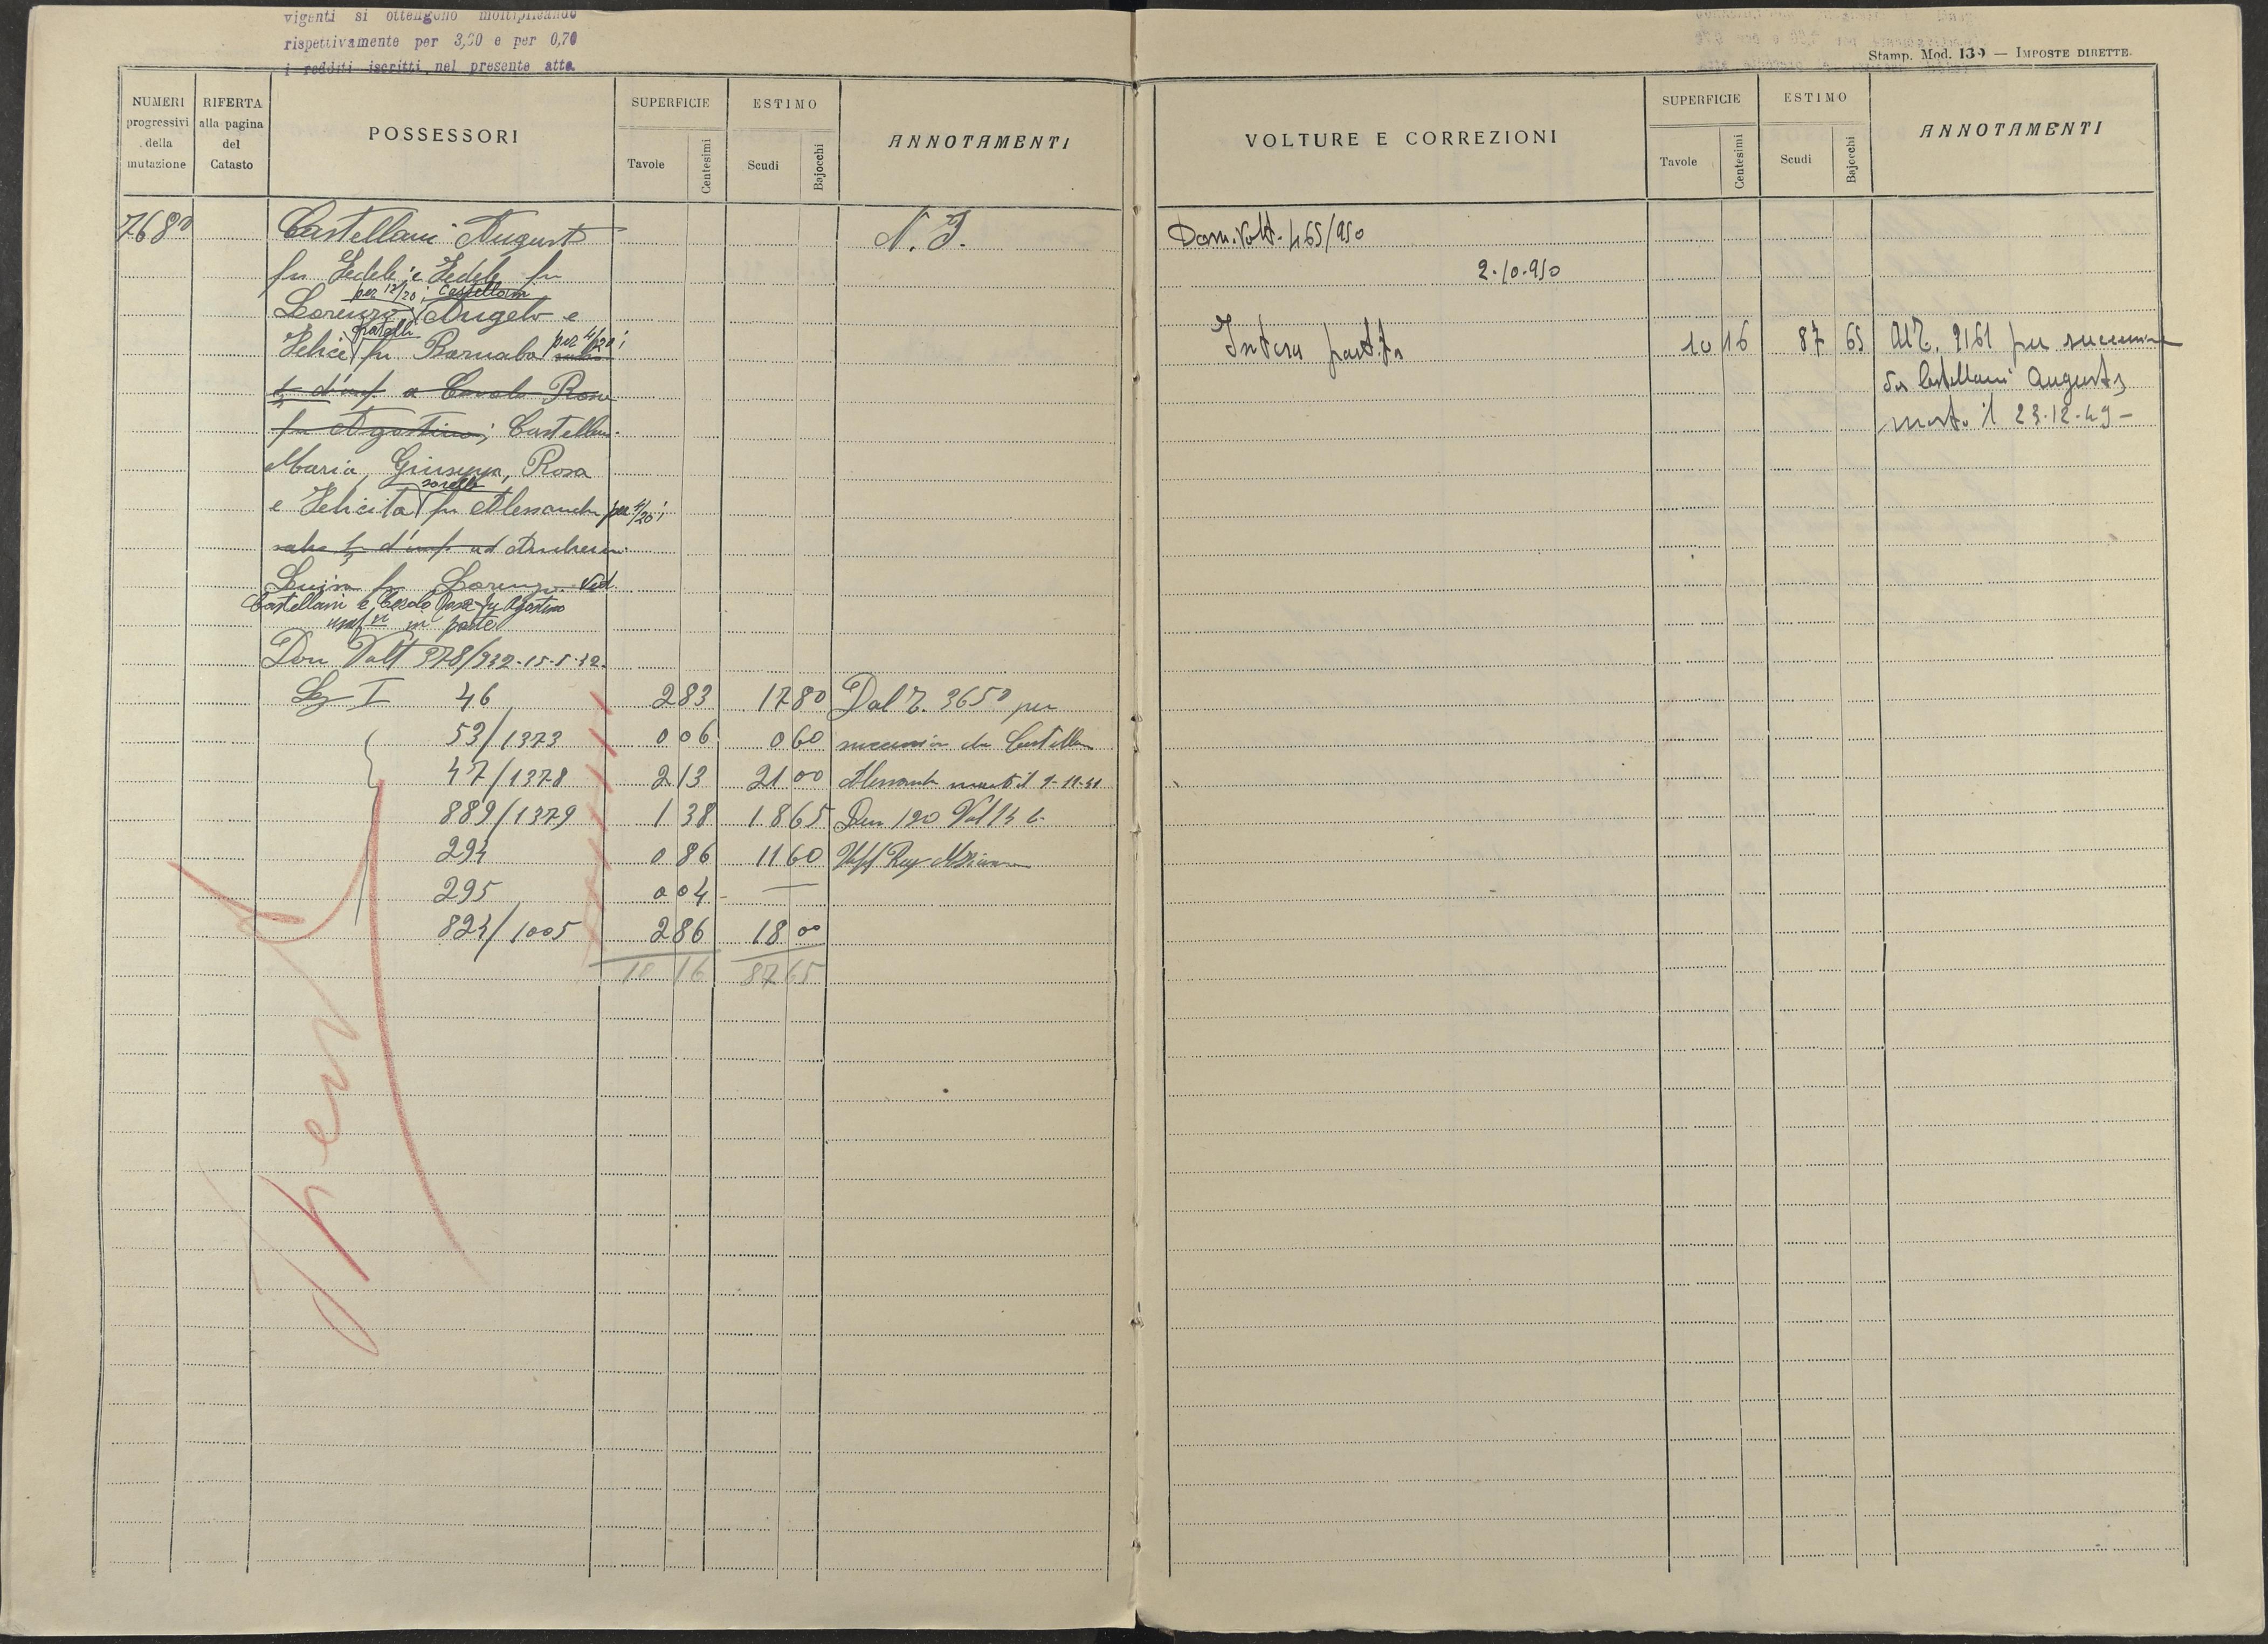 vigenti si ottengono moltiplicando
rispettivamente per 3,30 e per 0,70
i redditi iscritti nel presente atto.
NUMERI progressivi della mutazione
RIFERTA alla pagina del Catasto
POSSESSORI
SUPERFICIE
Tavole
Centesimi
ESTIMO
Scudi
Bajocchi
ANNOTAMENTI
7680
Castellani Augusto
N. I.
fu Fedele e Fedele fu
per 12/20; Castellani
Lorenzo Angelo e
fratelli
Felice fu Barnaba per 4/20;
d'usf. a Cavalo Rosa
fu Agostino; Castellani
Maria, Giuseppa, Rosa
sorelle
e Felicita fu Alessandro per 4/20;
salvo d'usf. ad
Luisa fu Lorenzo ved.
Castellani e Rosa fu Agostino
in parte
Dom Volt 378/932-15-5-32.
I 46 2 83 17 80 Dal R. 3650 per
53/1373 0 06 0 60 successione da Castellani
47/1378 2 13 21 00 Alessandro morto il 9-11-31
889/1379 1 38 18 65 Den 120 Vol
294 0 86 11 60 Uff Reg
295 0 04 —
824/1005 2 86 18 00
10 16 87 65
Stamp. Mod. 130 — IMPOSTE DIRETTE.
VOLTURE E CORREZIONI
SUPERFICIE
Tavole
Centesimi
ESTIMO
Scudi
Bajocchi
ANNOTAMENTI
Dom. Volt. 465/950
2.10.950
Intera partita 10 16 87 65 Al R. 9161 per successione
da Castellani Augusto
morto il 23-12-49-